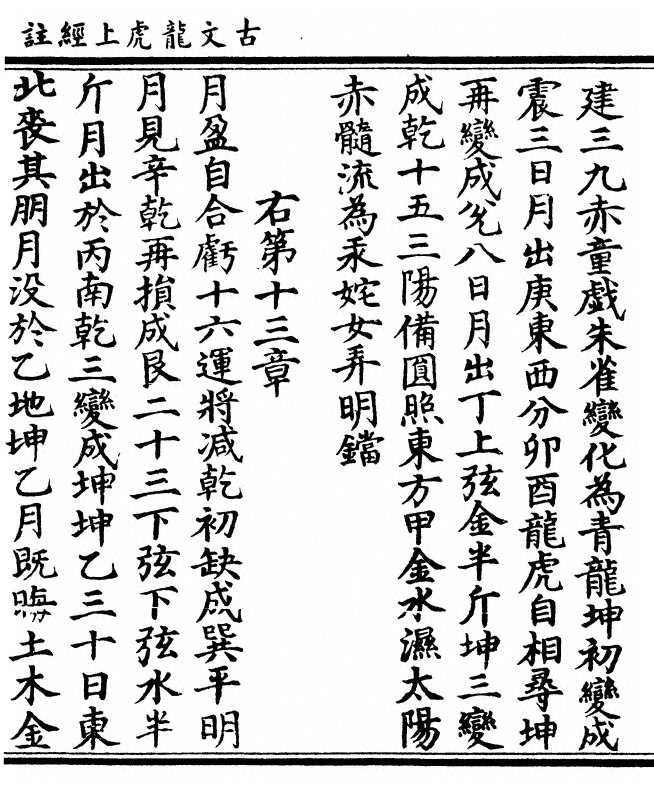 古文龍虎上經註
建三九赤童戲朱雀變化為青龍坤初變成
震三日月出庚東西分卯酉龍虎自相尋坤
再變成兊八日月出丁上弦金半斤坤三變
成乾十五三陽備圓照東方甲金水濕太陽
赤髓流為汞姹女弄明鐺
右第十三章
月盈自合虧十六運將減乾初缺成巽平明
月見辛乾再損成艮二十三下弦下弦水半
斤月出於丙南乾三變成坤坤乙三十日東
北喪其朋月没於乙地坤乙月既晦土木金